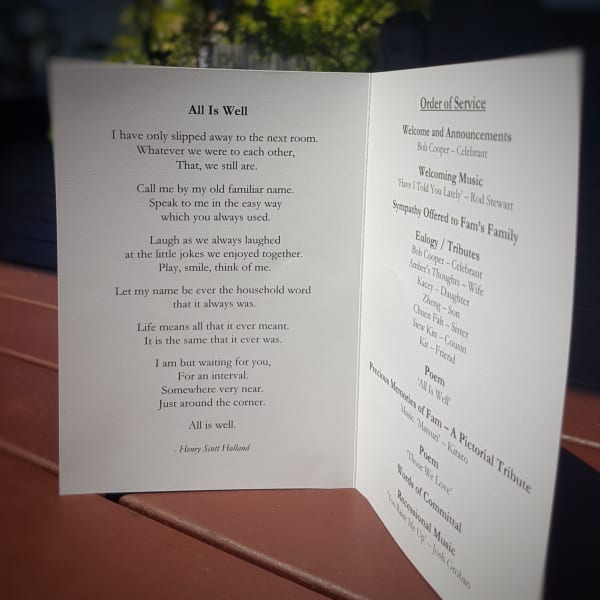 All Is Well
I have only slipped away to the next room.
Whatever we were to each other,
That, we still are.
Call me by my old familiar name.
Speak to me in the easy way
which you always used.
Laugh as we always laughed
at the little jokes we enjoyed together.
Play, smile, think of me.
Let my name be ever the household word
that it always was.
Life means all that it ever meant.
It is the same that it ever was.
I am but waiting for you,
For an interval.
Somewhere very near.
Just around the corner.
All is well.
- Henry Scott Holland
Order of Service
Welcome and Announcements
Bob Cooper – Celebrant
Welcoming Music
'Have I Told You Lately' – Rod Stewart
Sympathy Offered to Fam's Family
Eulogy / Tributes
Bob Cooper – Celebrant
Amber's Thoughts – Wife
Kacey – Daughter
Zheng – Son
Chuen Fah – Sister
Siew Kin – Cousin
Kit – Friend
Poem
'All Is Well'
Precious Memories of Fam – A Pictorial Tribute
Music: 'Matsuri' – Kitaro
Poem
'Those We Love'
Words of Committal
Recessional Music
'You Raise Me Up' – Josh Groban